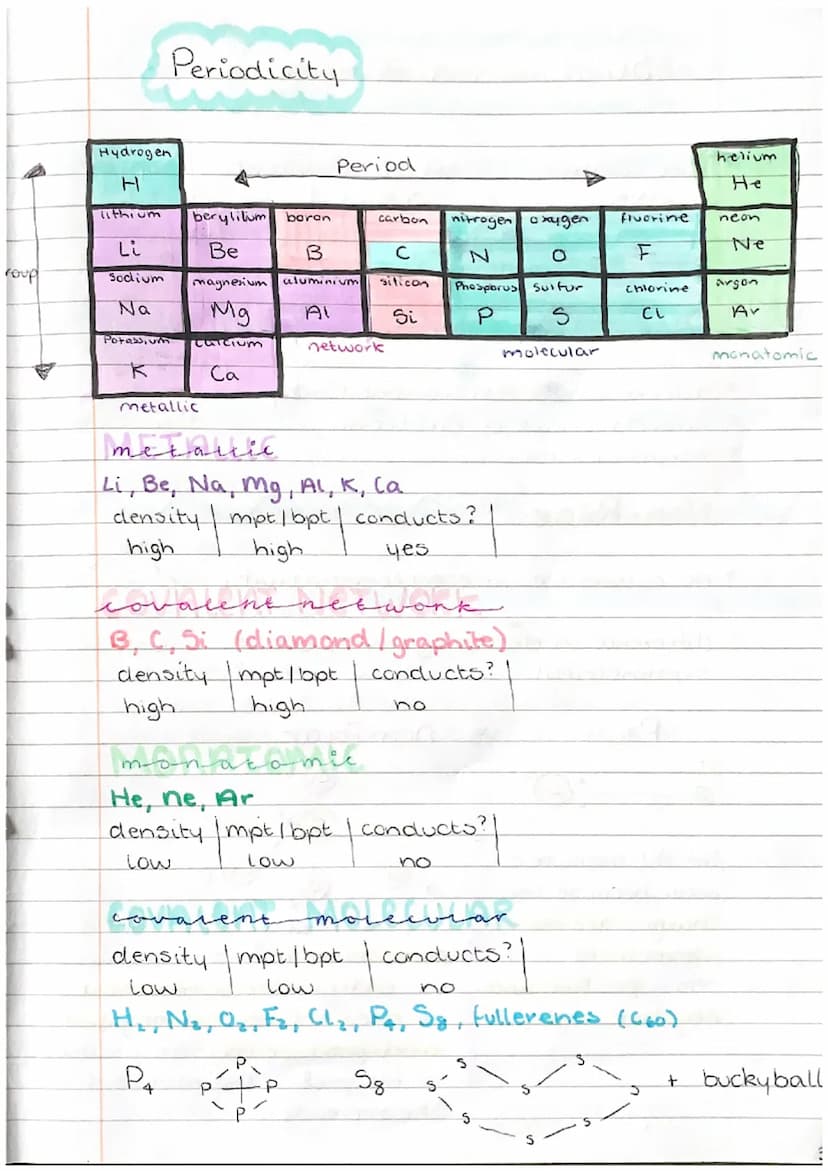 Periodicity
Hydrogen helium
H Period He
lithium berylilum boron carbon nitrogen oxygen fluorine neon
Li Be B C N O F Ne
roup
sodium magnesium aluminium silicon Phosporus sulfur chlorine argon
Na Mg Al Si P S Cl Ar
Potassium calcium network molecular monatomic
K Ca
metallic
metallic
Li, Be, Na, Mg, Al, K, Ca
density mpt/bpt conducts?
high high yes
covalent network
B, C, Si (diamond/graphite)
density mpt/bpt conducts?
high high no
monatomic
He, ne, Ar
density mpt/bpt conducts?
low low no
covalent molecular
density mpt/bpt conducts?
low low no
H₂, N₂, O₂, F₂, Cl₂, P₄, S₈, fullerenes (C60)
P₄ P P P P S₈ S S S S S S S S + buckyball